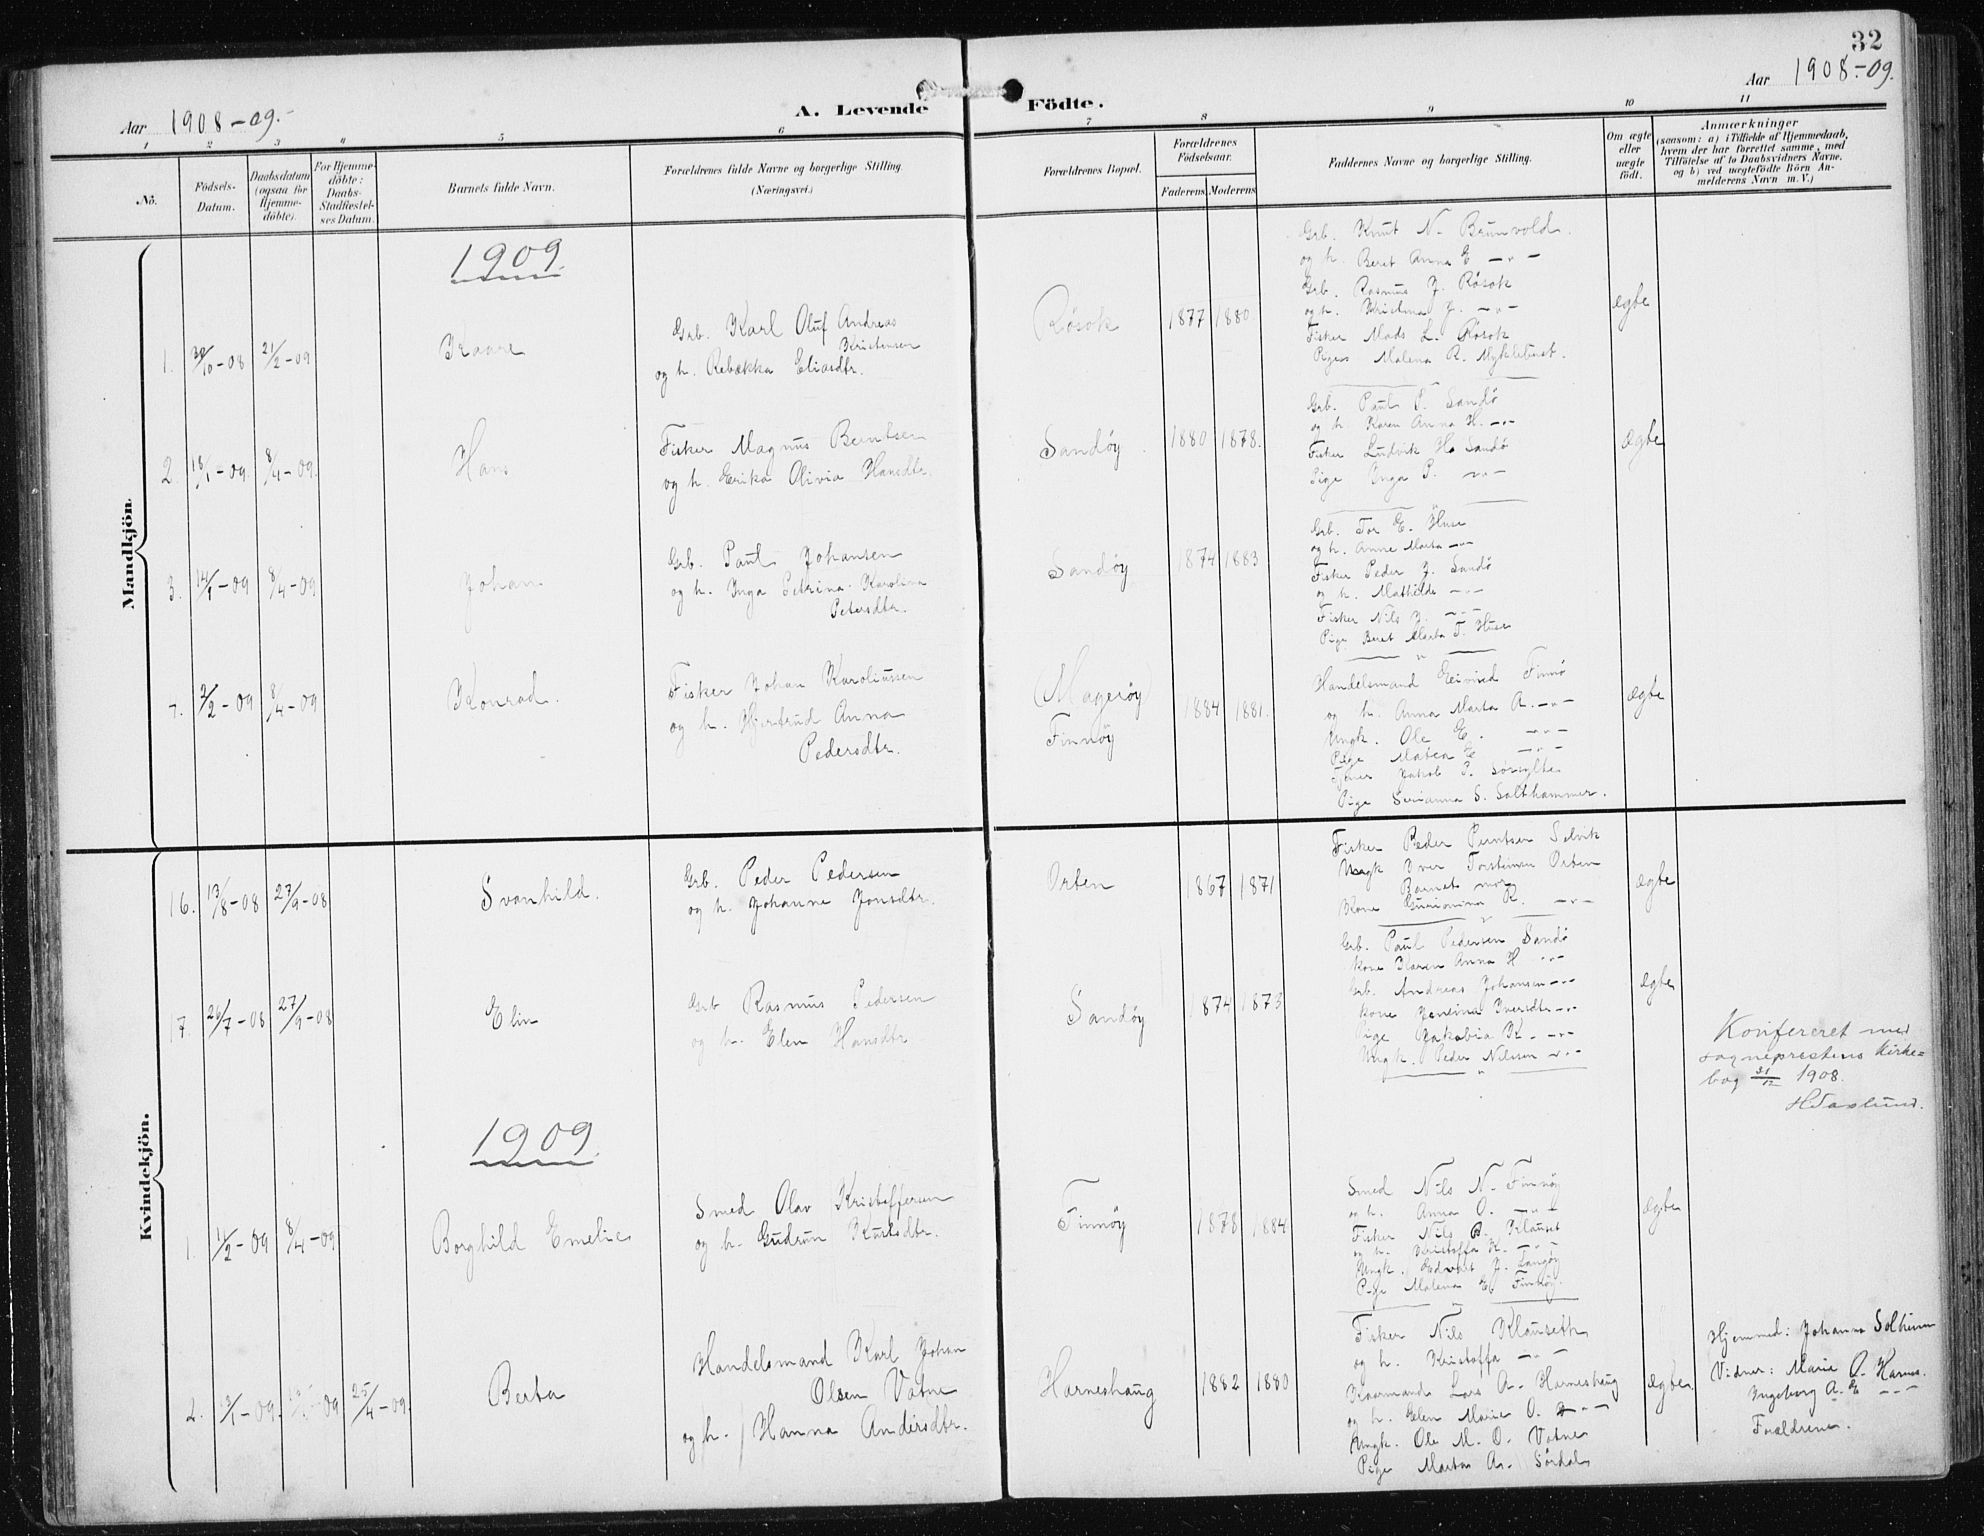 32
Aar 1908-09.
A. Levende Födte.
Aar 1908-09.
1 2 3 4 5 6 7 8 9 10 11
No.
Födsels-Datum.
Daabsdatum (ogsaa for Hjemme-döbte).
For Hjemme-döbte: Daabs-Stadfæstel-ses Datum.
Barnets fulde Navn.
Forældrenes fulde Navne og borgerlige Stilling.
(Næringsvei.)
Forældrenes Bopæl.
Forældrenes Födselsaar.
Faderens Moderens
Faddernes Navne og borgerlige Stilling.
Om ægte eller uægte födt.
Anmærkninger
(saasom: a) i Tilfælde af Hjemmedaab,
hvem der har forrettet samme, med
Tilföielse af to Daabsvidners Navne.
og b) ved uægtefödte Börn An-
melderens Navn m. V.)
Mandkjön.
1909.
1. 30/10-08 21/2-09 Kaare
Grb. Karl Oluf Andreas
Kristensen
og h. Rebekka Eliasdtr.
Røsok 1877 1880
Grb. Knut N. Brunvold.
og h. Beret Anna E -"-
Grb. Rasmus J. Røsok
og h. Kristina J. -"-
Fisker Mads L. Røsok
Piges Malena R. Myklebust.
ægte
2. 18/1-09. 8/4-09. Hans
Fisker Magnus Berntsen
og h. Erika Olivia Hansdtr.
Sandøy 1880 1878.
Grb. Paul P. Sandø
og h. Karen Anna H. -"-
Fisker Ludvik H. Sandø
Pige Inga P. -"-
ægte
3. 14/1-09 8/4-09 Johan
Grb. Paul Johansen
og h. Inga Petrina Karolina
Petersdtr.
Sandøy 1874 1883
Grb. Tor E. Huse
og h. Anne Marta -"-
Fisker Peder J. Sandø
og h. Mathilde -"-
Fisker Nils J. -"-
Pige Beret Marta T. Huse
4. 2/2-09 8/4-09 Konrad.
Fisker Johan Karoliussen
og h. Hjertrud Anna
Pedersdtr.
(Magerøy)
Finnøy
1884 1881.
Handelsmand Eivind Finnø
og h. Anna Marta A. -"-
Ungk. Ole E. -"-
Pige Matea E -"-
Jakob P. Sørsylte
Pige Serianna S. Salthammer.
ægte
Kvindekjön.
16. 13/8-08 27/9-08 Svanhild.
Grb. Peder Pedersen
og h. Johanne Jonsdtr.
Orten 1867 1871
Fisker Peder Berntsen Selvik
Ungk Iver Torsteinsen Orten
Barnets mor
Kone Gurianna K. -"-
ægte
17. 26/7-08 27/9-08 Elin
Grb Rasmus Pedersen
og h. Elen Hansdtr
Sandøy 1874 1873
Grb. Paul Pedersen Sandø
kone Karen Anna H -"-
Grb. Andreas Johansen -"-
kone Jensina Iversdtr -"-
Pige Jakobia K. -"-
Ungk. Peder Nilssen -"-
ægte
Konfereret med
sogneprestens kirke=
bog 31/12 1908.
1909.
1. 1/2-09 8/4-09 Borghild Emelie
Smed Olav Kristoffersen
og h. Gudrun Knutsdtr.
Finnøy 1878 1884
Smed Nils N. Finnøy
og h. Anna O. -"-
Fisker Nils B. Klauset
og h. Kristoffa K. -"-
Ungk. Edvart J. Langøy
Pige Malena E. Finnøy.
ægte
2. 2/1-09. 09 25/4-09. Berta
Handelsmand Karl Johan
Olsen Vatne
og h. Hanna Andersdtr.
Harneshaug 1882 1880
Fisker Nils Klauseth
og h. Kristoffa -"-
Kaarmand Lars A. Harneshaug
og h. Elen Marie O. -"-
Ungk. Ole M. O. Vatne
Pige Martha A. Sørdal
ægte.
Hjemmed: Johanna Solheim
Vidner: Marie O. Harnes.
Ingeborg A. E -"-
Forældrene.